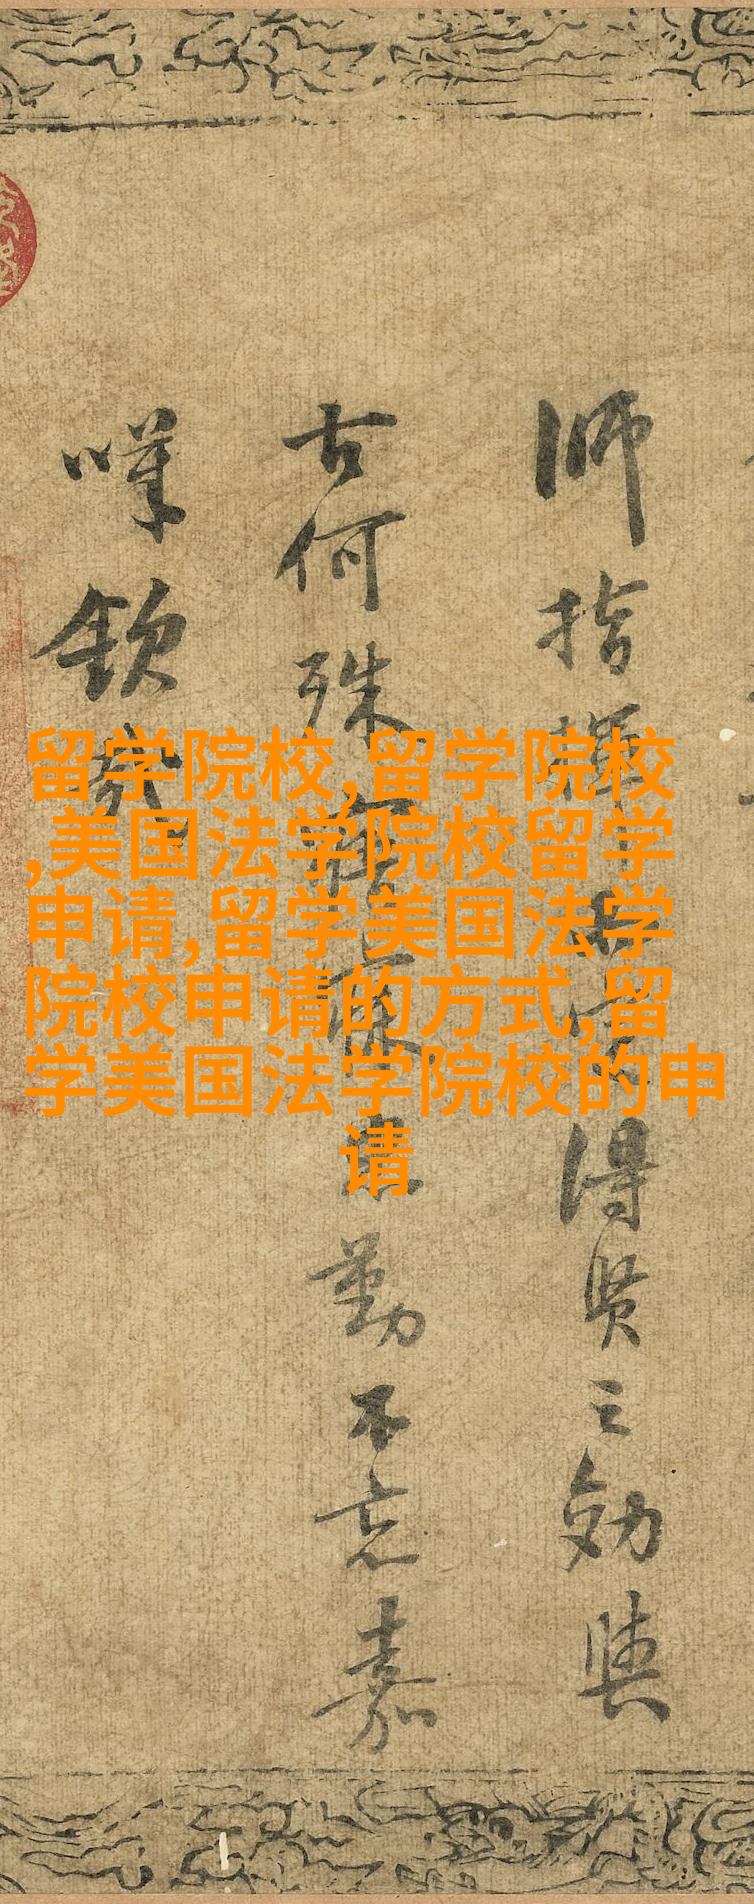 師指揮得賢之効與
古何殊勤不忘嘉
嘆欽哉
留学院校,留学院校
,美国法学院校留学
申请,留学美国法学
院校申请的方式,留
学美国法学院校的申
请